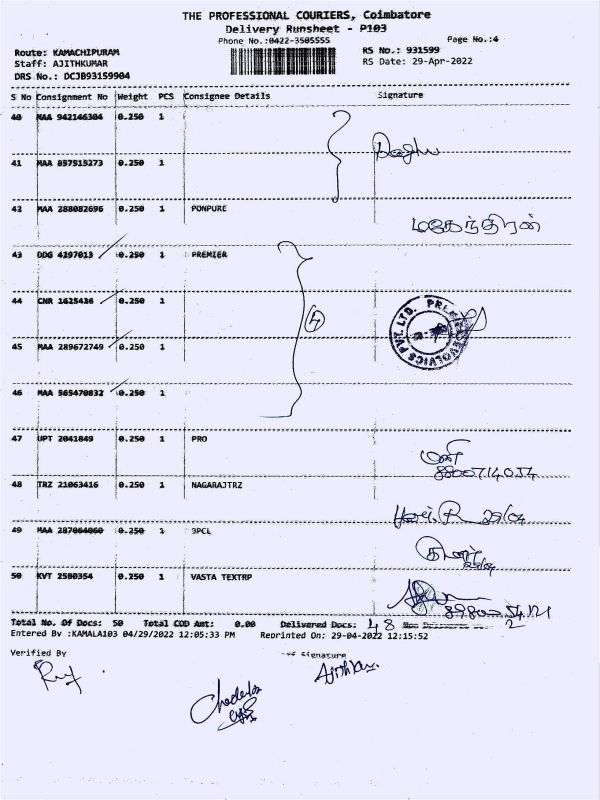 THE PROFESSIONAL COURIERS, Coimbatore
Delivery Runsheet - P103
Phone No.:0422-3505555 Page No.:4
Route: KAMACHIPURAM RS No.: 931599
Staff: AJITHKUMAR RS Date: 29-Apr-2022
DRS No.: DCJB93159904
S No Consignment No Weight PCS Consignee Details Signature
40 MAA 942146304 0.250 1
41 MAA 857515273 0.250 1
42 MAA 288082696 0.250 1 PONPURE
மகேந்திரன்
43 DDG 4297013 0.250 1 PREMIER
44 CNR 1625436 0.250 1
4
45 MAA 289672749 0.250 1
46 MAA 565470832 0.250 1
47 UPT 2041849 0.250 1 PRO
மணி
48 TRZ 21063416 0.250 1 NAGARAJTRZ
49 MAA 287064060 0.250 1 3PCL
50 KVT 2580354 0.250 1 VASTA TEXTRP
Total No. Of Docs: 50 Total COD Amt: 0.00 Delivered Docs: 48 2
Entered By :KAMALA103 04/29/2022 12:05:33 PM Reprinted On: 29-04-2022 12:15:52
Verified By Signature